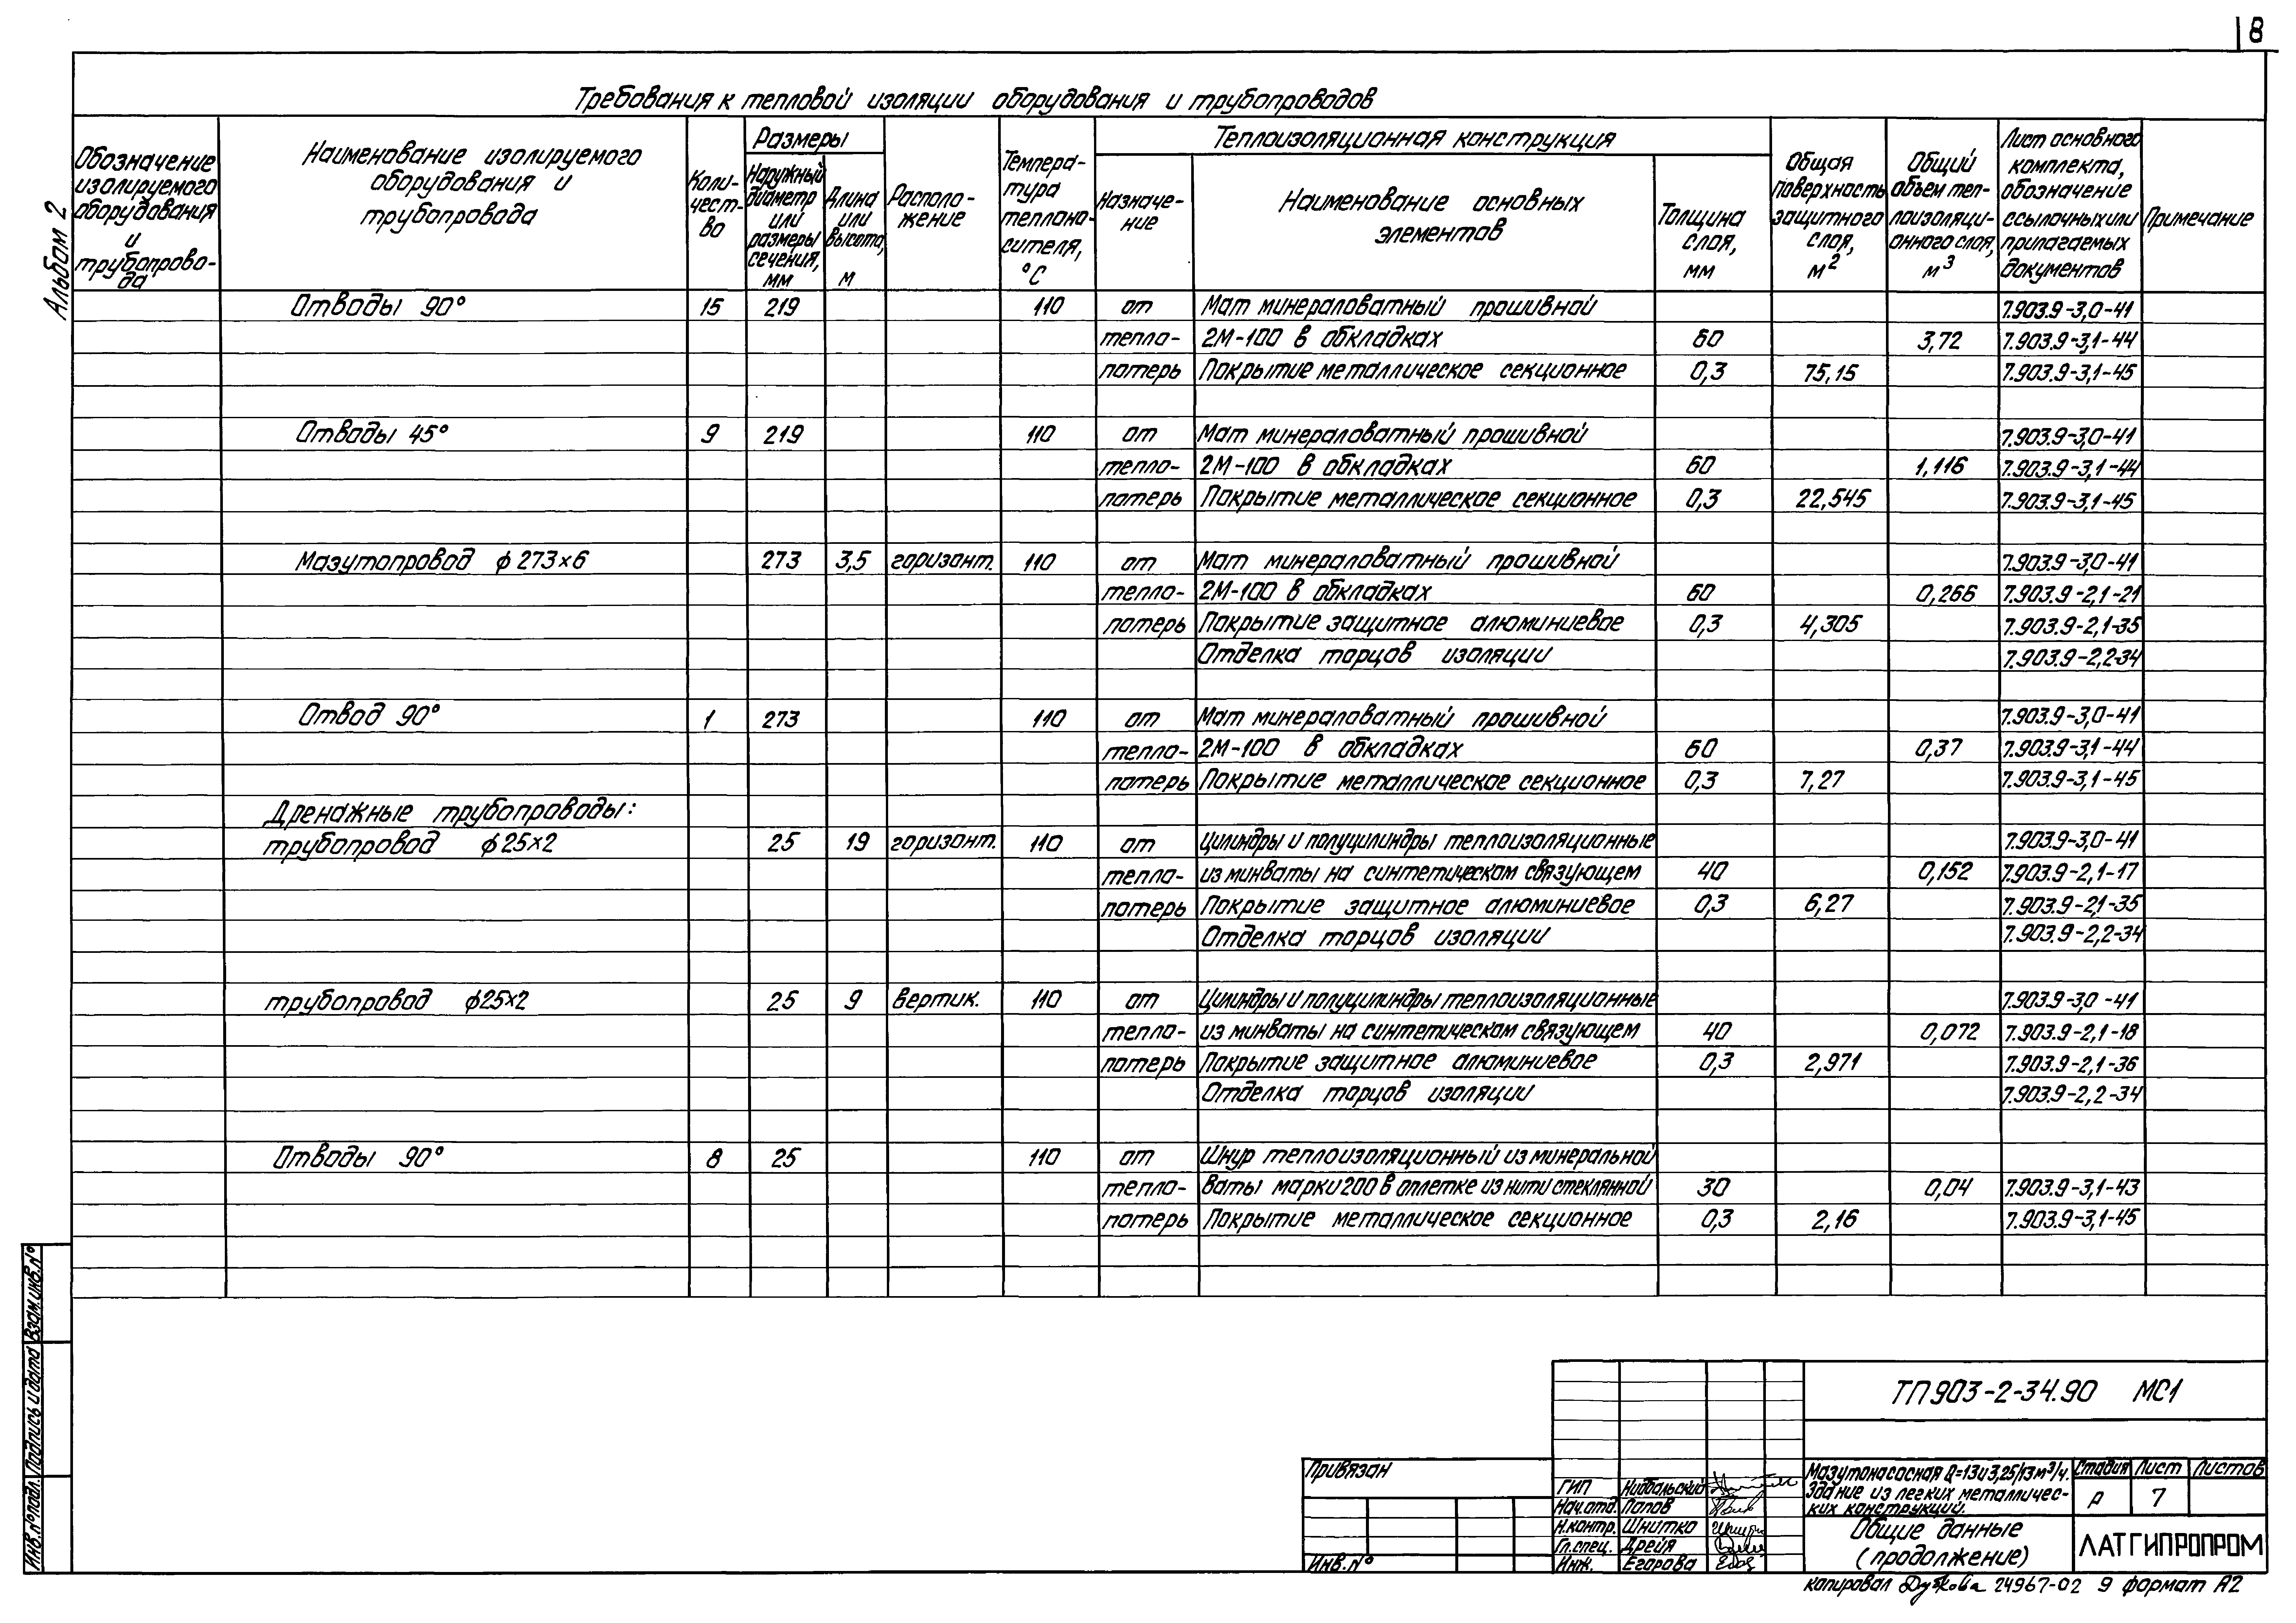 8
Альбом 2
Требования к тепловой изоляции оборудования и трубопроводов
Обозначение изолируемого оборудования и трубопрово-да
Наименование изолируемого оборудования и трубопровода
Коли-чест-во
Размеры
Наружный диаметр или размеры сечения, мм
Длина или высота, м
Располо-жение
Темпера-тура теплоно-сителя, °С
Теплоизоляционная конструкция
Назначе-ние
Наименование основных элементов
Толщина слоя, мм
Общая поверхность защитного слоя, м²
Общий объем теп-лоизоляци-онного слоя, м³
Лист основного комплекта, обозначение ссылочных или прилагаемых документов
Примечание
Отводы 90° 15 219 110 от Мат минераловатный прошивной 7.903.9-3,0-41
тепло- 2М-100 в обкладках 60 3,72 7.903.9-3,1-44
потерь Покрытие металлическое секционное 0,3 75,15 7.903.9-3,1-45
Отводы 45° 9 219 110 от Мат минераловатный прошивной 7.903.9-3,0-41
тепло- 2М-100 в обкладках 60 1,116 7.903.9-3,1-44
потерь Покрытие металлическое секционное 0,3 22,545 7.903.9-3,1-45
Мазутопровод ф 273×6 273 3,5 горизонт. 110 от Мат минераловатный прошивной 7.903.9-3,0-41
тепло- 2М-100 в обкладках 60 0,266 7.903.9-2,1-21
потерь Покрытие защитное алюминиевое 0,3 4,305 7.903.9-2,1-35
Отделка торцов изоляции 7.903.9-2,2-34
Отвод 90° 1 273 110 от Мат минераловатный прошивной 7.903.9-3,0-41
тепло- 2М-100 в обкладках 60 0,37 7.903.9-3,1-44
потерь Покрытие металлическое секционное 0,3 7,27 7.903.9-3,1-45
Дренажные трубопроводы:
трубопровод ф25×2 25 19 горизонт. 110 от Цилиндры и полуцилиндры теплоизоляционные 7.903.9-3,0-41
тепло- из минваты на синтетическом связующем 40 0,152 7.903.9-2,1-17
потерь Покрытие защитное алюминиевое 0,3 6,27 7.903.9-2,1-35
Отделка торцов изоляции 7.903.9-2,2-34
трубопровод ф25×2 25 9 вертик. 110 от Цилиндры и полуцилиндры теплоизоляционные 7.903.9-3,0-41
тепло- из минваты на синтетическом связующем 40 0,072 7.903.9-2,1-18
потерь Покрытие защитное алюминиевое 0,3 2,971 7.903.9-2,1-36
Отделка торцов изоляции 7.903.9-2,2-34
Отводы 90° 8 25 110 от Шнур теплоизоляционный из минеральной
тепло- ваты марки 200 в оплетке из нити стеклянной 30 0,04 7.903.9-3,1-43
потерь Покрытие металлическое секционное 0,3 2,16 7.903.9-3,1-45
Взам.инв.№
Подпись и дата
Инв.№подл.
ТП903-2-34.90 МС1
Привязан
Инв.№
ГИП Нидбальский
Нач.отд. Попов
Н.контр. Шнитко
Гл.спец. Дрейя
Инж. Егорова
Мазутонасосная Q=13и3,25/13м³/ч.
Здание из легких металличес-
ких конструкций.
Стадия Лист Листов
Р 7
Общие данные
(продолжение)
ЛАТГИПРОПРОМ
копировал Дудкова 24967-02 9 формат А2